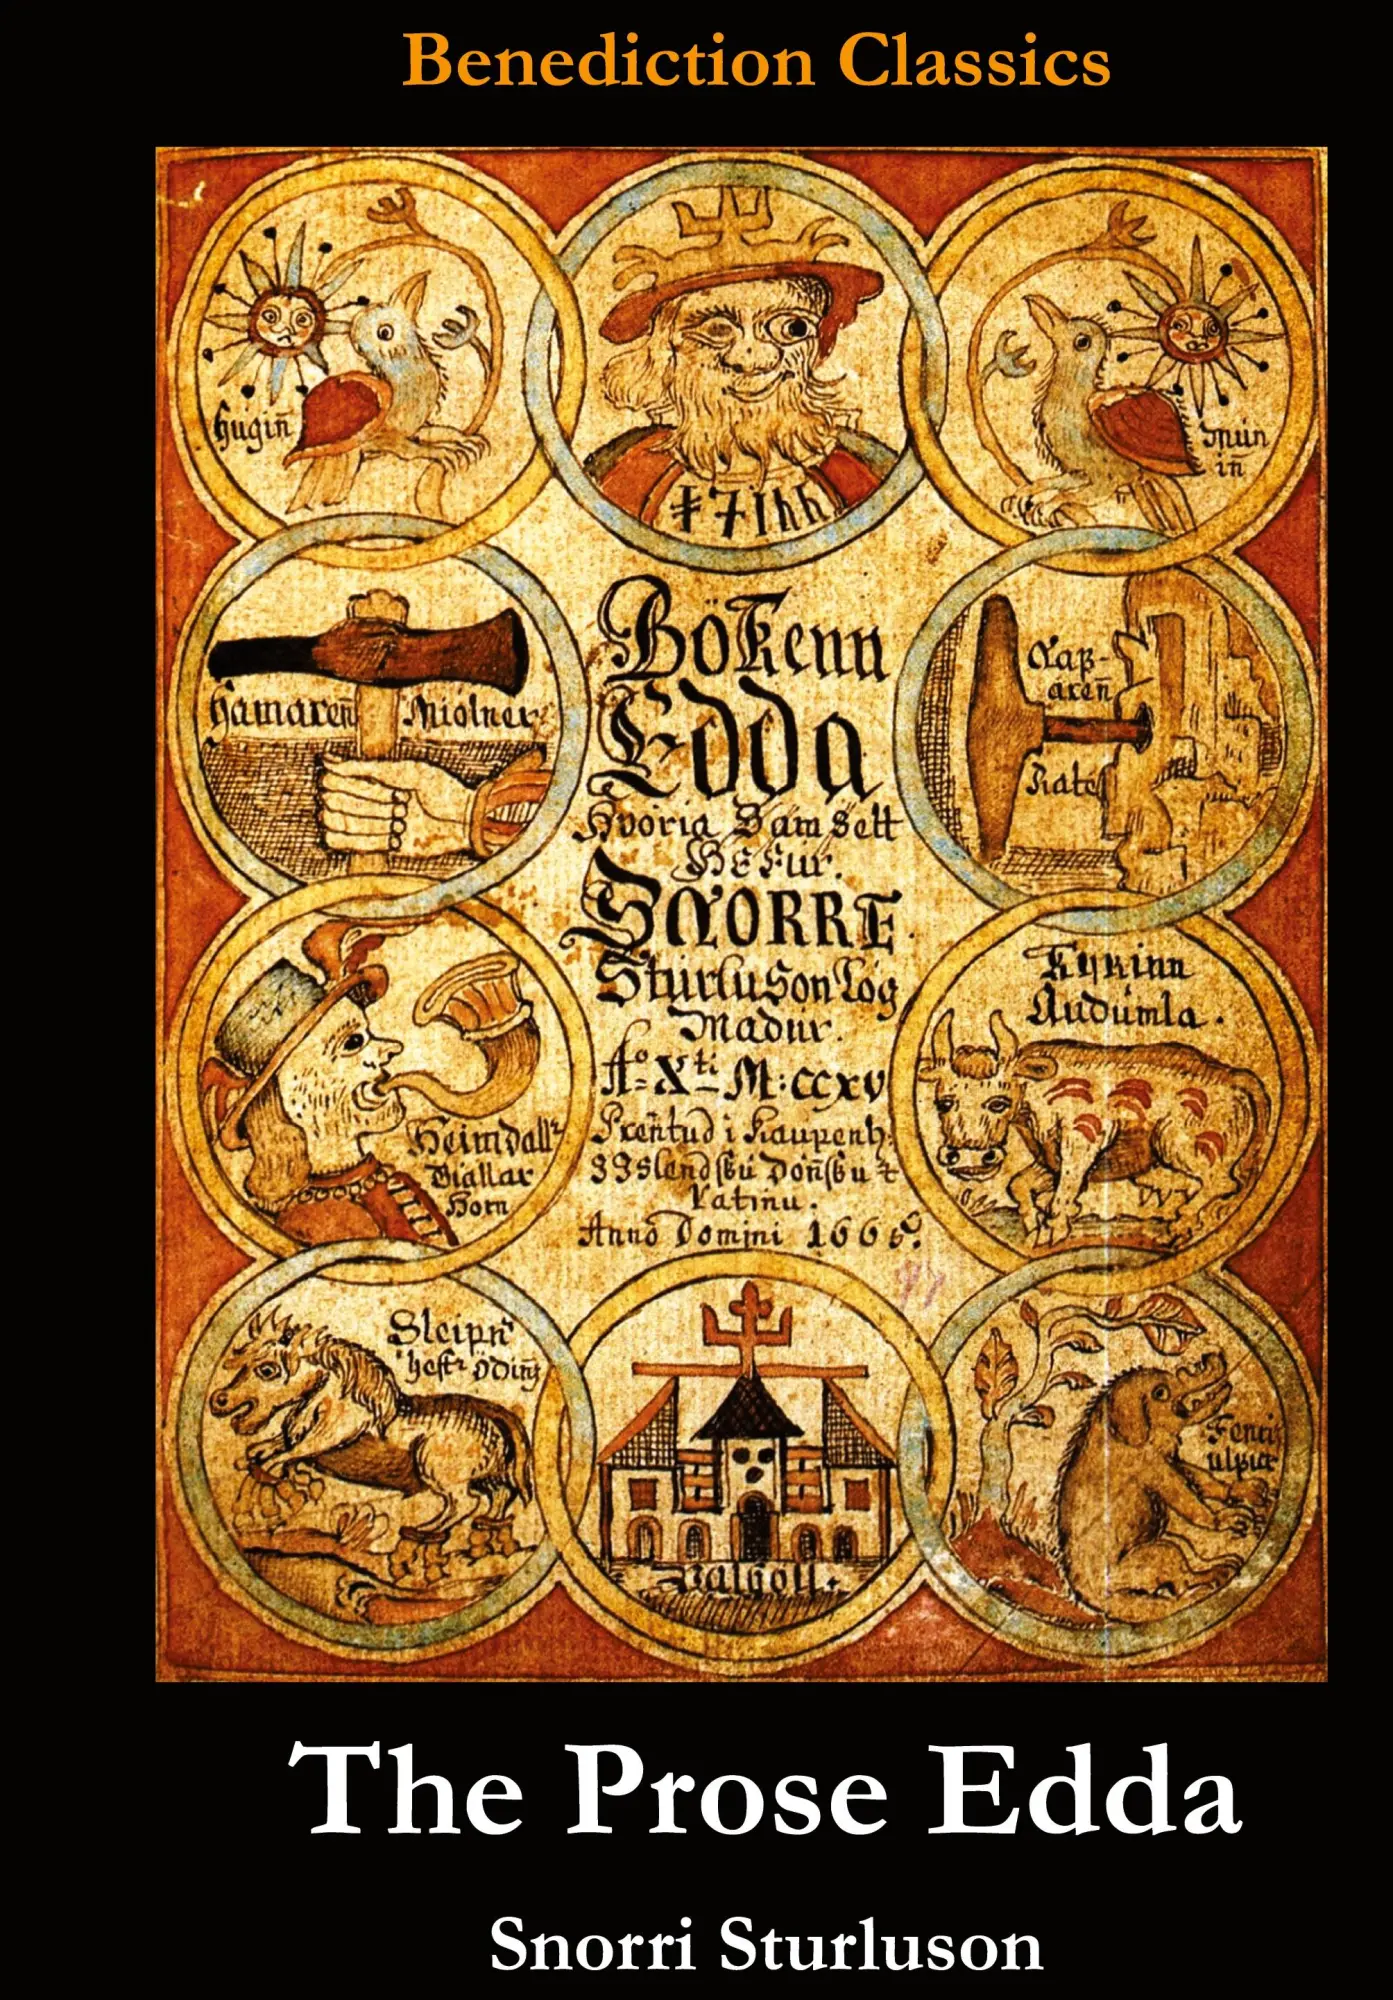 Benediction Classics
Hugiñ
Mün
iñ
Hamareñ Miölner
Bökenn
Edda
Hvöria Sam Sett
Hefur.
SNORRE.
Sturluson Lög
Madür.
Aº Xti M:ccxv
Preñtud i Kaupenh:
Jslendsku Döñsku &
Latinu.
Anno Domini 1665.
Naf-
areñ
Rate
Heimdallr
Giallar
Horn
Kyrinn
Audümla.
Sleipnr
hestr Odins
Valhöll.
Fenris
ulfur
The Prose Edda
Snorri Sturluson